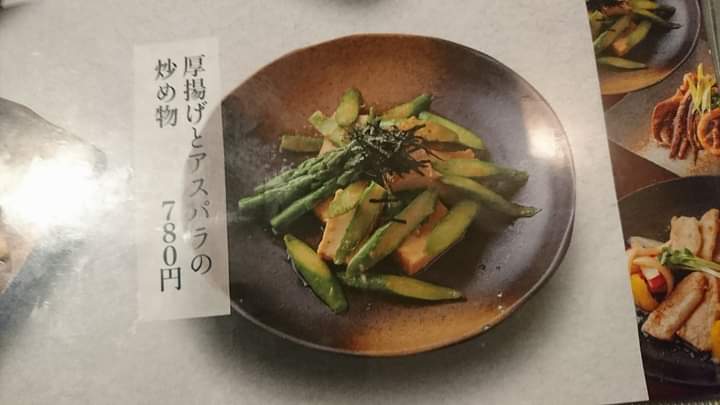 厚揚げとアスパラの
炒め物　780円